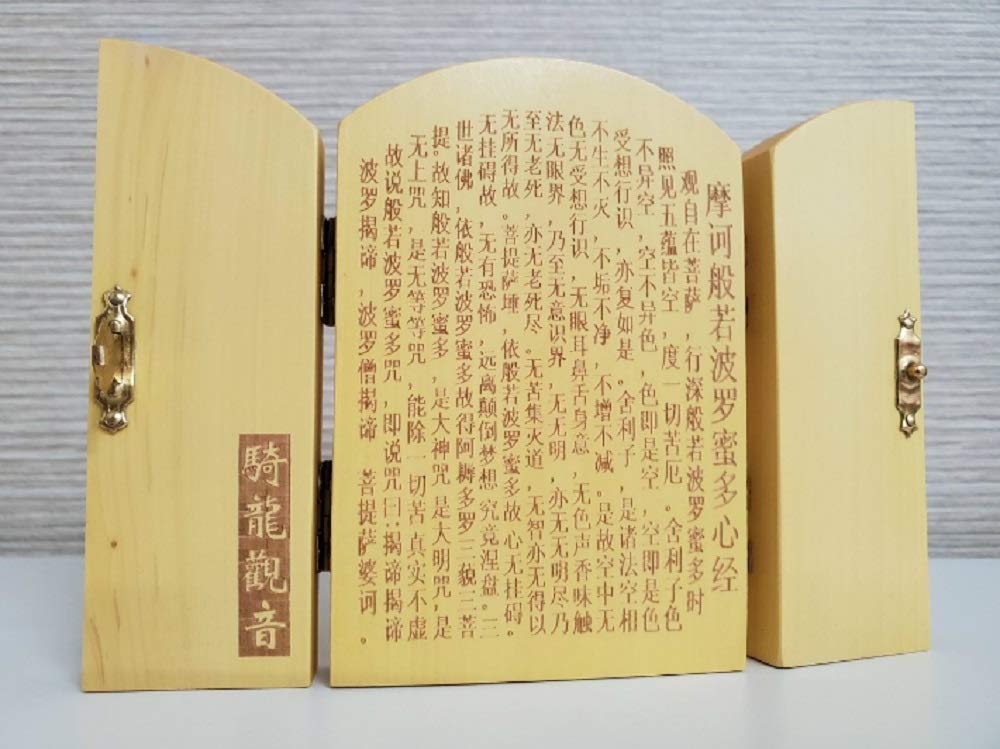 摩诃般若波罗蜜多心经
观自在菩萨，行深般若波罗蜜多时
照见五蕴皆空，度一切苦厄。舍利子色
不异空，空不异色，色即是空，空即是色
受想行识，亦复如是。舍利子，是诸法空相
不生不灭，不垢不净，不增不减。是故空中无
色无受想行识，无眼耳鼻舌身意，无色声香味触
法无眼界，乃至无意识界，无无明，亦无无明尽乃
至无老死，亦无老死尽。无苦集灭道，无智亦无得以
无所得故。菩提萨埵，依般若波罗蜜多故，心无挂碍。
无挂碍故，无有恐怖，远离颠倒梦想，究竟涅盘。三
世诸佛，依般若波罗蜜多故得阿耨多罗三貌三菩
提。故知般若波罗蜜多，是大神咒，是大明咒，是
无上咒，是无等等咒，能除一切苦真实不虚
故说般若波罗蜜多咒，即说咒曰：揭谛揭谛
波罗揭谛，波罗僧揭谛 菩提萨婆诃。
騎龍觀音